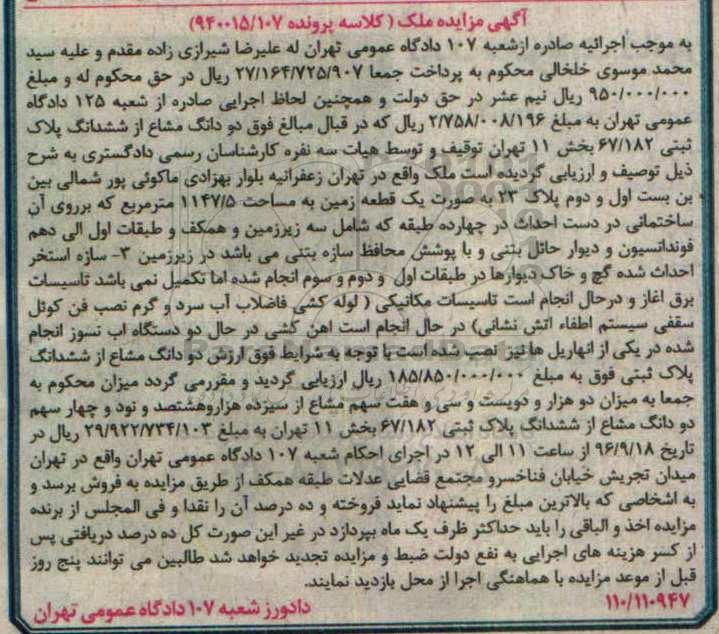 آگهی مزایده ملک ( کلاسه پرونده ۹۴۰۰۱۵/۱۰۷)
به موجب اجرائیه صادره ازشعبه ۱۰۷ دادگاه عمومی تهران له علیرضا شیرازی زاده مقدم و علیه سید
محمد موسوی خلخالی محکوم به پرداخت جمعا ۲۷/۱۶۴/۷۲۵/۹۰۷ ریال در حق محکوم له و مبلغ
۹۵۰/۰۰۰/۰۰۰ ریال نیم عشر در حق دولت و همچنین لحاظ اجرایی صادره از شعبه ۱۲۵ دادگاه
عمومی تهران به مبلغ ۲/۷۵۸/۰۰۸/۱۹۶ ریال که در قبال مبالغ فوق دو دانگ مشاع از ششدانگ پلاک
ثبتی ۶۷/۱۸۲ بخش ۱۱ تهران توقیف و توسط هیات سه نفره کارشناسان رسمی دادگستری به شرح
ذیل توصیف و ارزیابی گردیده است ملک واقع در تهران زعفرانیه بلوار بهزادی ماکوئی پور شمالی بین
بن بست اول و دوم پلاک ۲۳ به صورت یک قطعه زمین به مساحت ۱۱۴۷/۵ مترمربع که برروی آن
ساختمانی در دست احداث در چهارده طبقه که شامل سه زیرزمین و همکف و طبقات اول الی دهم
فونداتسیون و دیوار حائل بتنی و با پوشش محافظ سازه بتنی می باشد در زیرزمین ۳- سازه استخر
احداث شده گچ و خاک دیوارها در طبقات اول و دوم و سوم انجام شده اما تکمیل نمی باشد تاسیسات
برق اغاز و درحال انجام است تاسیسات مکانیکی ( لوله کشی فاضلاب آب سرد و گرم نصب فن کوئل
سقفی سیستم اطفاء اتش نشانی) در حال انجام است اهن کشی در حال دو دستگاه اب نسوز انجام
شده در یکی از انهاریل ها نیز نصب شده است با توجه به شرایط فوق ارزش دو دانگ مشاع از ششدانگ
پلاک ثبتی فوق به مبلغ ۱۸۵/۸۵۰/۰۰۰/۰۰۰ ریال ارزیابی گردید و مقررمی گردد میزان محکوم به
جمعا به میزان دو هزار و دویست و سی و هفت سهم مشاع از سیزده هزاروهشتصد و نود و چهار سهم
دو دانگ مشاع از ششدانگ پلاک ثبتی ۶۷/۱۸۲ بخش ۱۱ تهران به مبلغ ۲۹/۹۲۲/۷۳۴/۱۰۳ ریال در
تاریخ ۹۶/۹/۱۸ از ساعت ۱۱ الی ۱۲ در اجرای احکام شعبه ۱۰۷ دادگاه عمومی تهران واقع در تهران
میدان تجریش خیابان فناخسرو مجتمع قضایی عدلات طبقه همکف از طریق مزایده به فروش برسد و
به اشخاصی که بالاترین مبلغ را پیشنهاد نماید فروخته و ده درصد آن را نقدا و فی المجلس از برنده
مزایده اخذ و الباقی را باید حداکثر ظرف یک ماه بپردازد در غیر این صورت کل ده درصد دریافتی پس
از کسر هزینه های اجرایی به نفع دولت ضبط و مزایده تجدید خواهد شد طالبین می توانند پنج روز
قبل از موعد مزایده با هماهنگی اجرا از محل بازدید نمایند.
۱۱۰/۱۱۰۹۴۷
دادورز شعبه ۱۰۷ دادگاه عمومی تهران